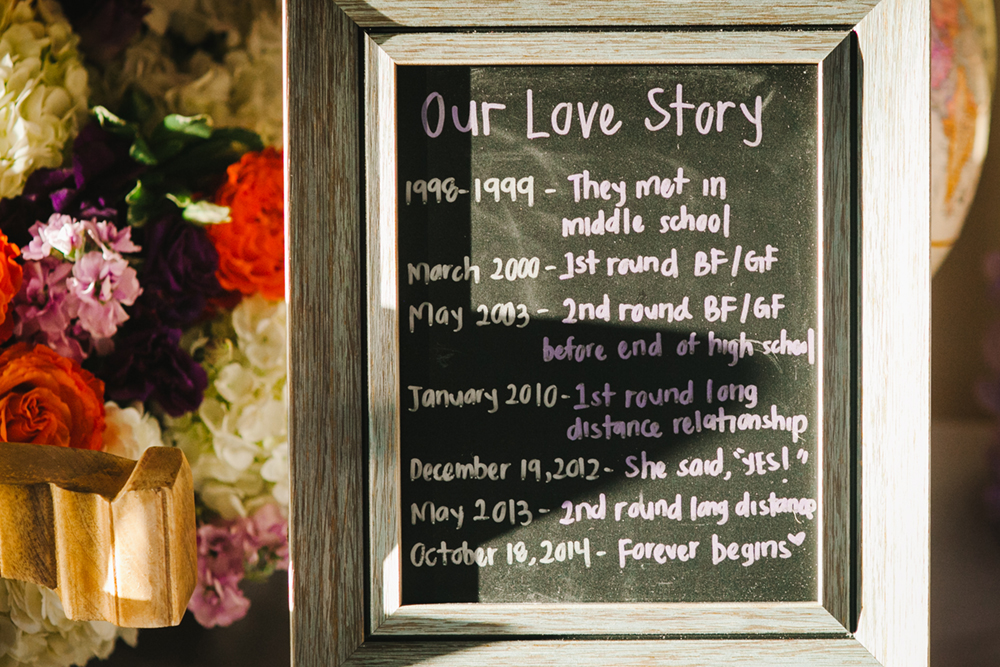 Our Love Story
1998-1999 - They met in
middle school
March 2000 - 1st round BF/GF
May 2003 - 2nd round BF/GF
before end of high school
January 2010 - 1st round long
distance relationship
December 19, 2012 - She said, "YES!"
May 2013 - 2nd round long distance
October 18, 2014 - Forever begins♥